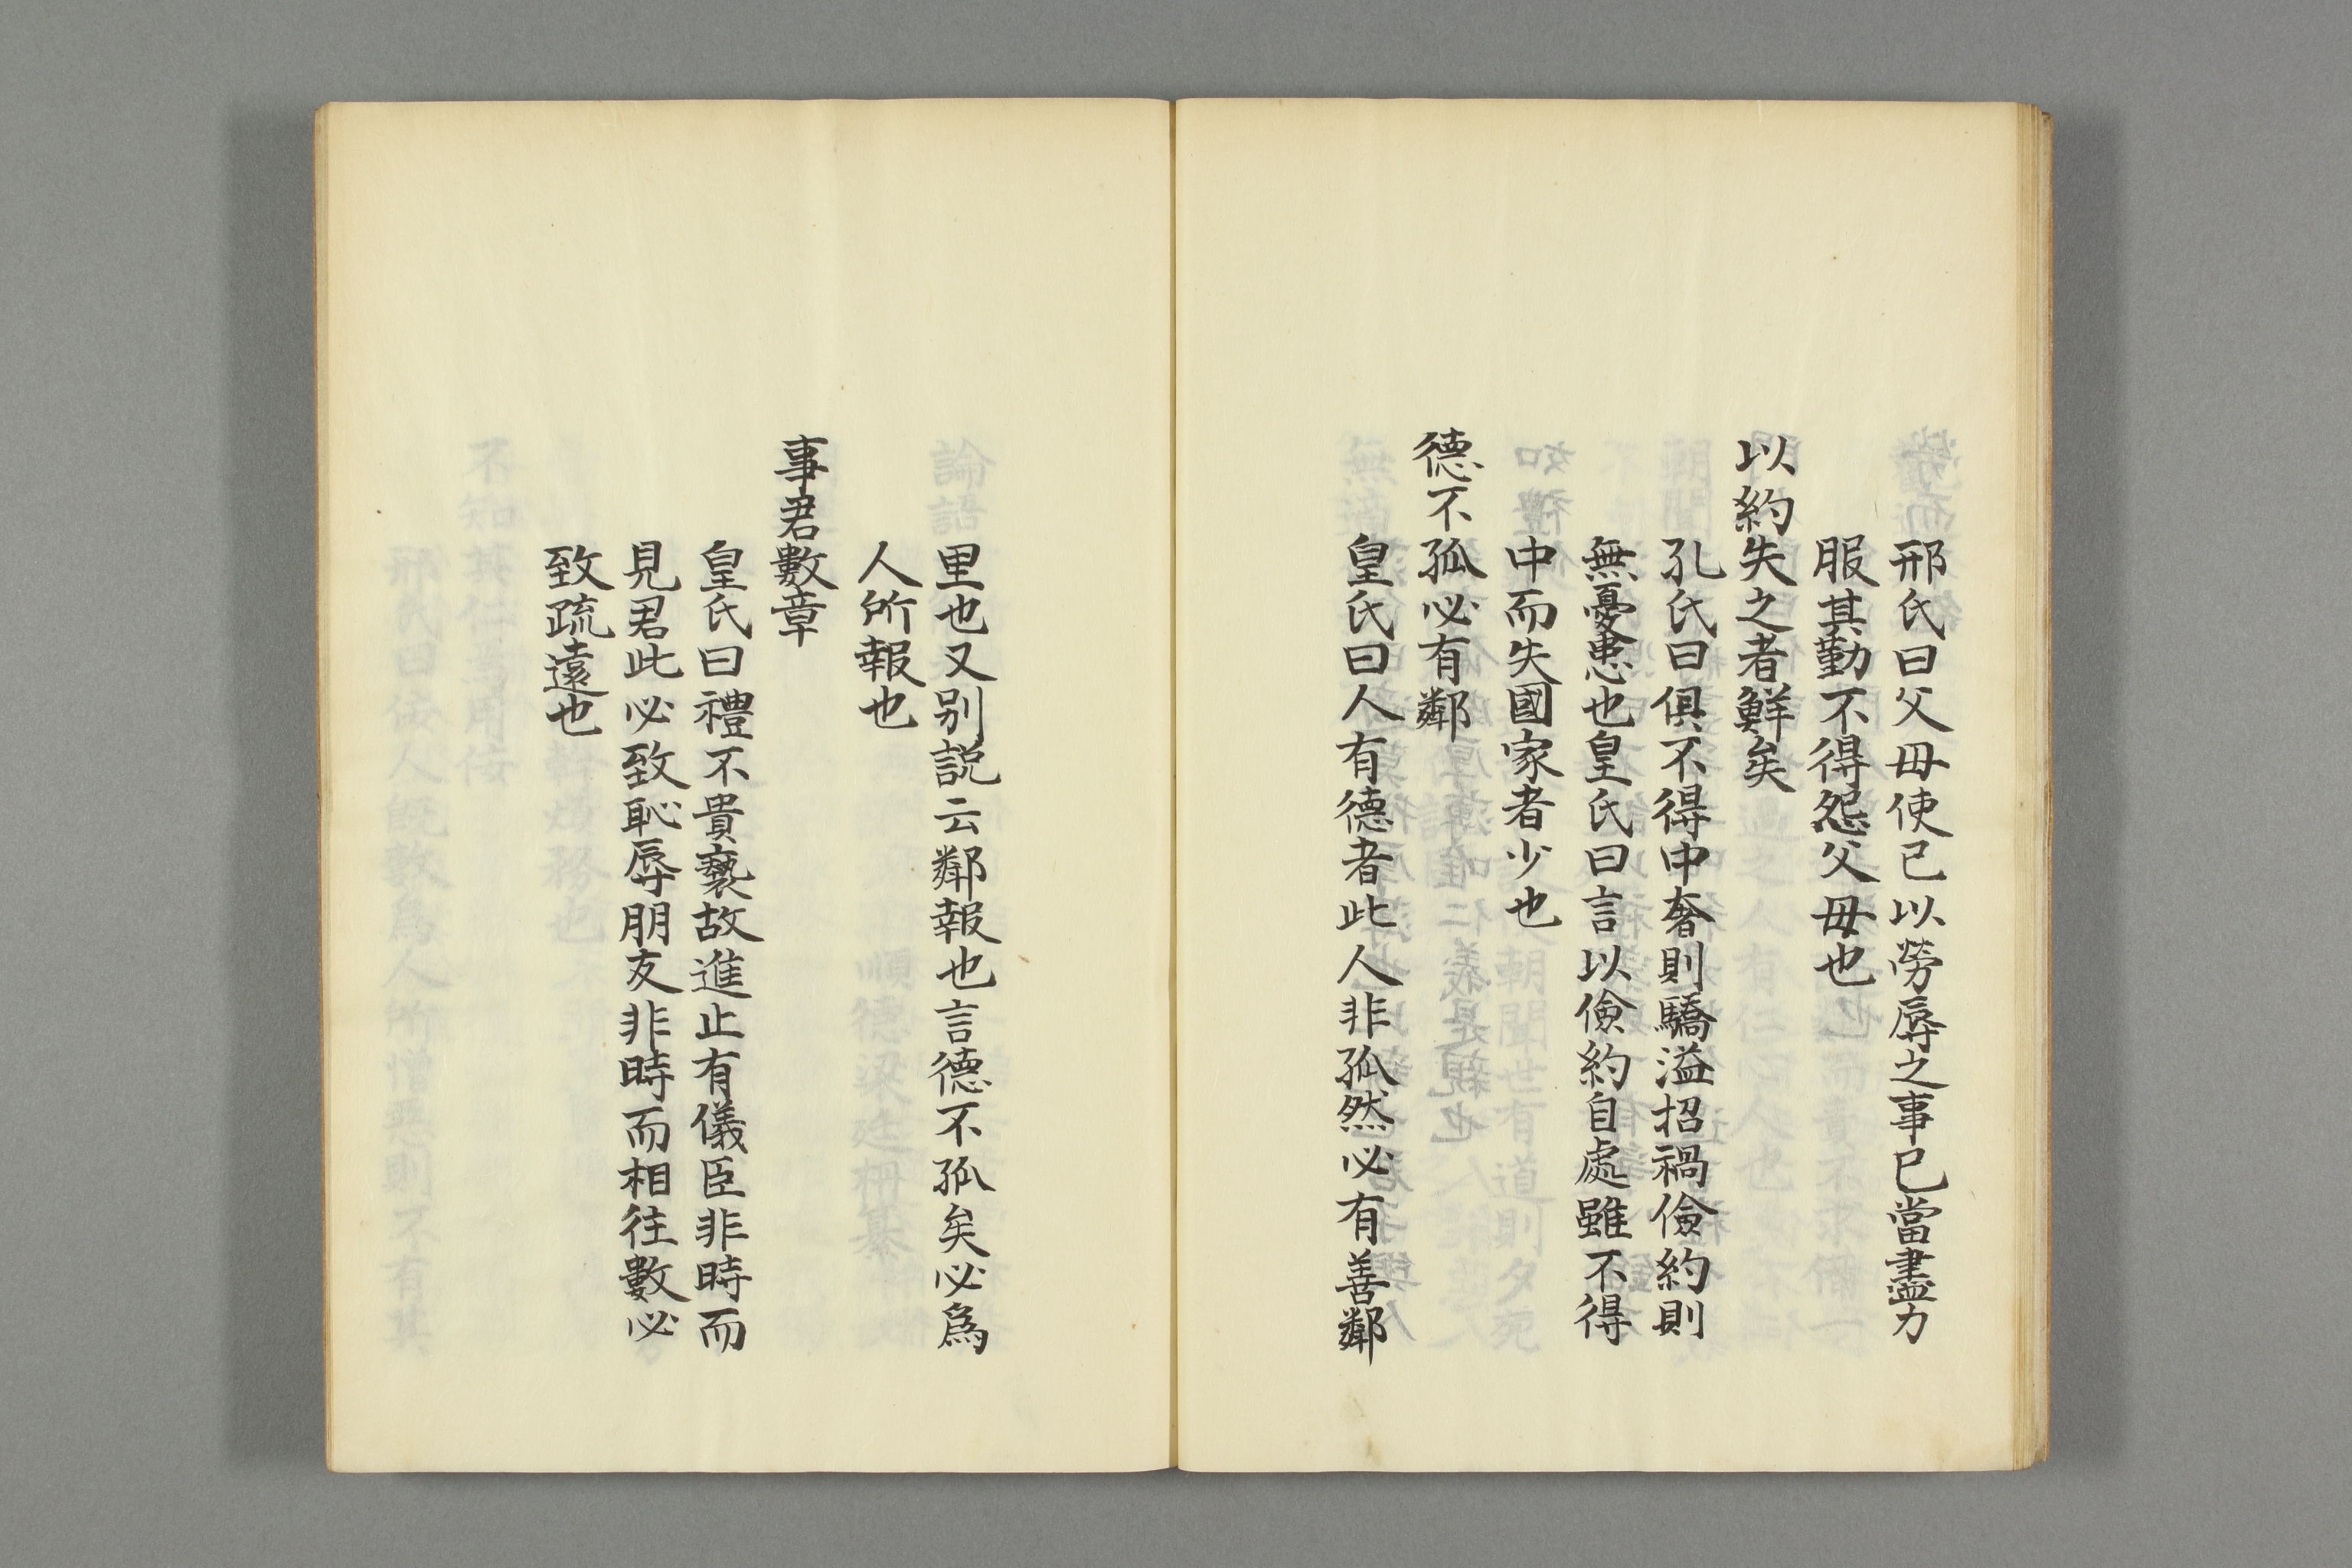 邢氏曰父母使己以勞辱之事已當盡力
服其勤不得怨父母也
以約失之者鮮矣
孔氏曰俱不得中奢則驕溢招禍儉約則
無憂患也皇氏曰言以儉約自處雖不得
中而失國家者少也
德不孤必有鄰
皇氏曰人有德者此人非孤然必有善鄰
里也又別説云鄰報也言德不孤矣必爲
人所報也
事君數章
皇氏曰禮不貴褻故進止有儀臣非時而
見君此必致恥辱朋友非時而相往數必
致疏遠也